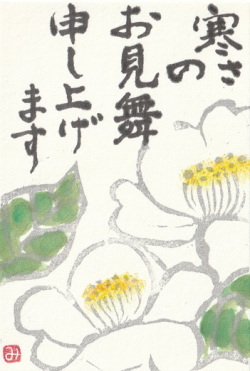 寒さ
の
お見舞
申し上げ
ます
み